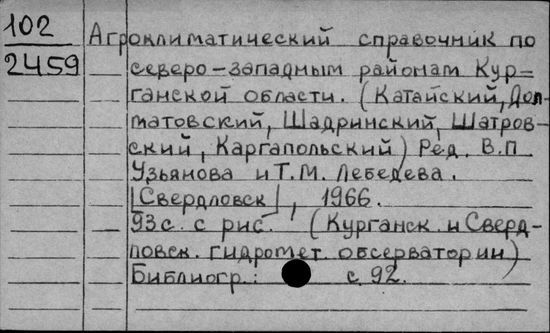 102
2459
Агроклиматический справочник по
северо-западным районам Кур-
ганской области. (Катайский, Дол-
матовский, Шадринский, Шатров-
ский, Каргапольский) Ред. В.П.
Узьянова и Т.М. Лебедева.
[Свердловск], 1966.
93с. с рис. (Курганск. и Сверд-
ловск. гидромет. обсерватории)
Библиогр.: с. 92.